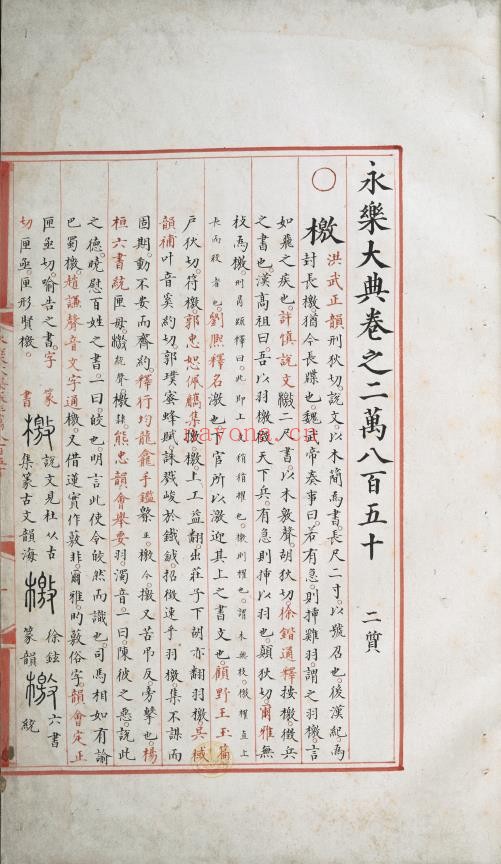 永樂大典卷之二萬八百五十　二質
檄洪武正韻刑狄切。說文以木簡爲書。長尺二寸。以號召也。後漢紀。爲
封長檄。猶今長牒也。魏武帝奏事曰。若有急。則揷雞羽。謂之羽檄。言
如飛之疾也。許慎說文檄二尺書。以木敫聲。胡狄切。徐鍇通釋按檄徵兵
之書也。漢高祖曰。吾以羽檄徵天下兵。有急則揷以羽也。顛狄切。爾雅無
枝爲檄。刑昺䟽釋曰。此即上梢梢櫂也。檄則櫂也。謂木無枝。檄櫂直上
長而殺者也。劉熈釋名激也。下官所以激迎其上之書文也。顧野王玉篇
户狄切。符檄。郭忠恕佩觿集檄檄。上工益翻。出莊子。下胡亦翻。羽檄。吳棫
韻補叶音奚約切。郭璞蜜蜂賦。誅戮峻於鐵鉞。招徵速乎羽檄。集不謀而
同期。動不安而齊約。釋行均龍龕手鑑檕正。檄今。檄又苦吊反。旁擊也。楊
桓六書統匣母。檄統聲。檄隸。熊忠韻會舉要羽濁音。一曰。陳彼之惡。說此
之德。曉慰百姓之書。一曰。皎也。明言此使令皎然而識也。司馬相如有諭
巴蜀檄。趙謙聲音文字通檄。又借運實作敫非。爾雅。的敫俗字。韻會定正
字切匣亟。匣形賢檄。
匣亟切。喻告之書。
篆書
檄說文見杜从古集篆古文韻海
檄徐鉉篆韻
檄六書統